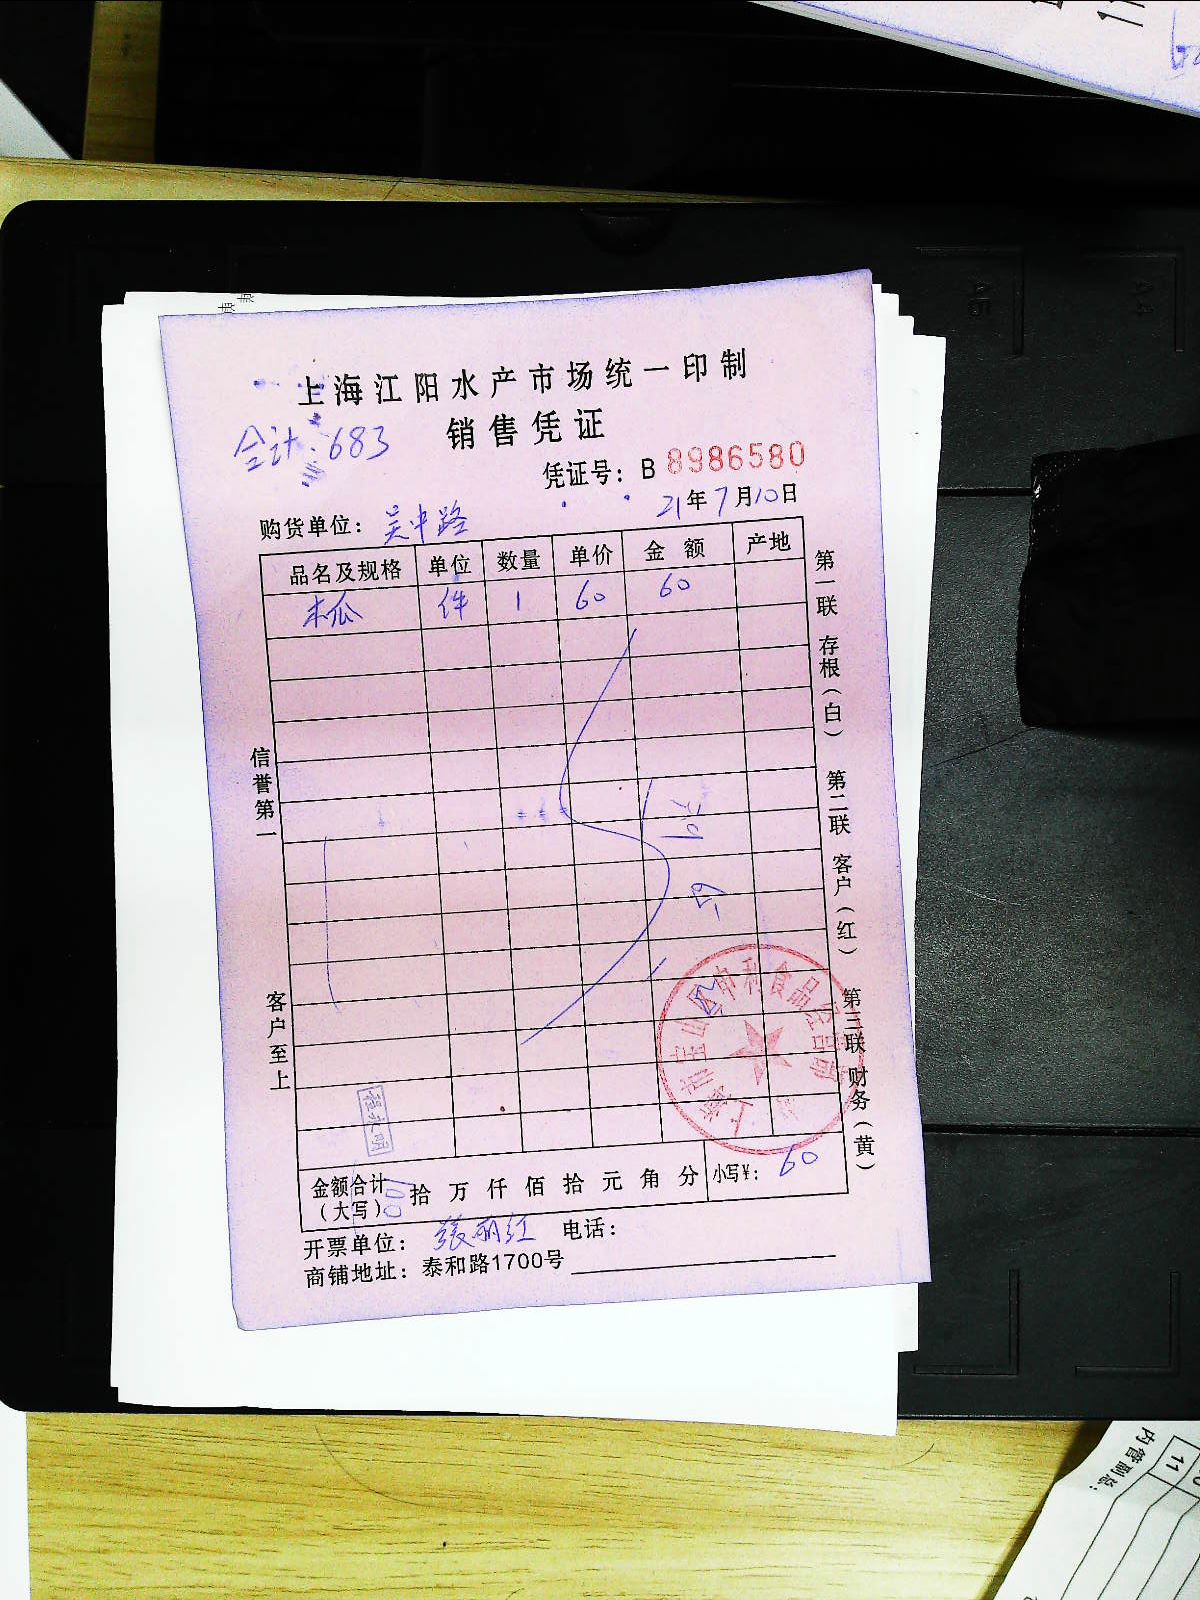 上海江阳水产市场统一印制
合计：683
销售凭证
凭证号：B 8986580
购货单位：吴中路 21年7月10日
品名及规格 单位 数量 单价 金额 产地
木瓜 件 1 60 60
第一联 存根（白） 第二联 客户（红） 第三联 财务（黄）
信誉第一
客户至上
金额合计（大写） 拾万仟佰拾元角分 小写¥：60
开票单位：張丽红 电话：
商铺地址：泰和路1700号
内管副总：
11